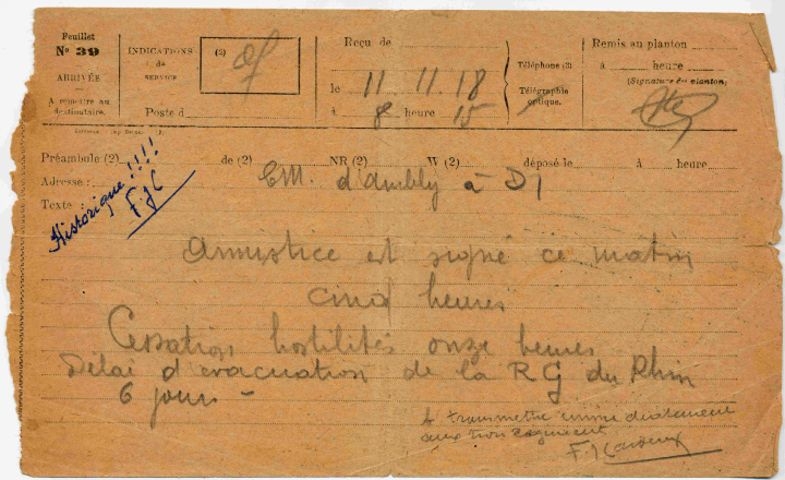 Feuillet
N° 39
ARRIVÉE
A remettre au
destinataire.
INDICATIONS
de
SERVICE
(2)
Poste d
Reçu de
le 11.11.18
à 8 heure 15
Téléphone (3)
Télégraphie
optique.
Remis au planton
à heure
(Signature du planton)
Préambule (2) de (2) NR (2) W (2) déposé le à heure
Adresse : d'Ambly à DI
Texte :
Historique !!!!
Armistice est signé ce matin
cinq heures
Cessation hostilités onze heures
Délai d'evacuation de la RG du Rhin
6 jours -
à transmettre immédiatement
aux trois régiments